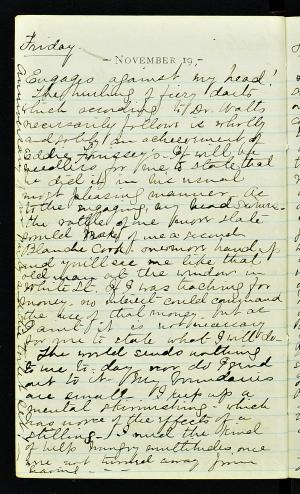 Friday.
NOVEMBER 19,
Engages against my head!
The hurling of fiery darts
which according to Dr. Watts
necessarily follows is wholly
and solely an achievement of
Eddie It will be
needless for me to state that
he did it in his usual
most pleasing manner. As
to the engaging, my head
the rattle of one more slate
would make of me a second
Blanche Cook. one more hand
and you'll see me like that
old man at the window in
White St. If I was teaching for
money. no interest could command
the use of that money. but as
I aint it is not necessary
for me to state what I will do
The world sends nothing
to me to-day, nor do I send
out to it. My boundaries
are small. I keep up a
mental skirmishing which
has none of the effects of a
I need the kind
of help hungry multitudes, once
were not turned away from
having